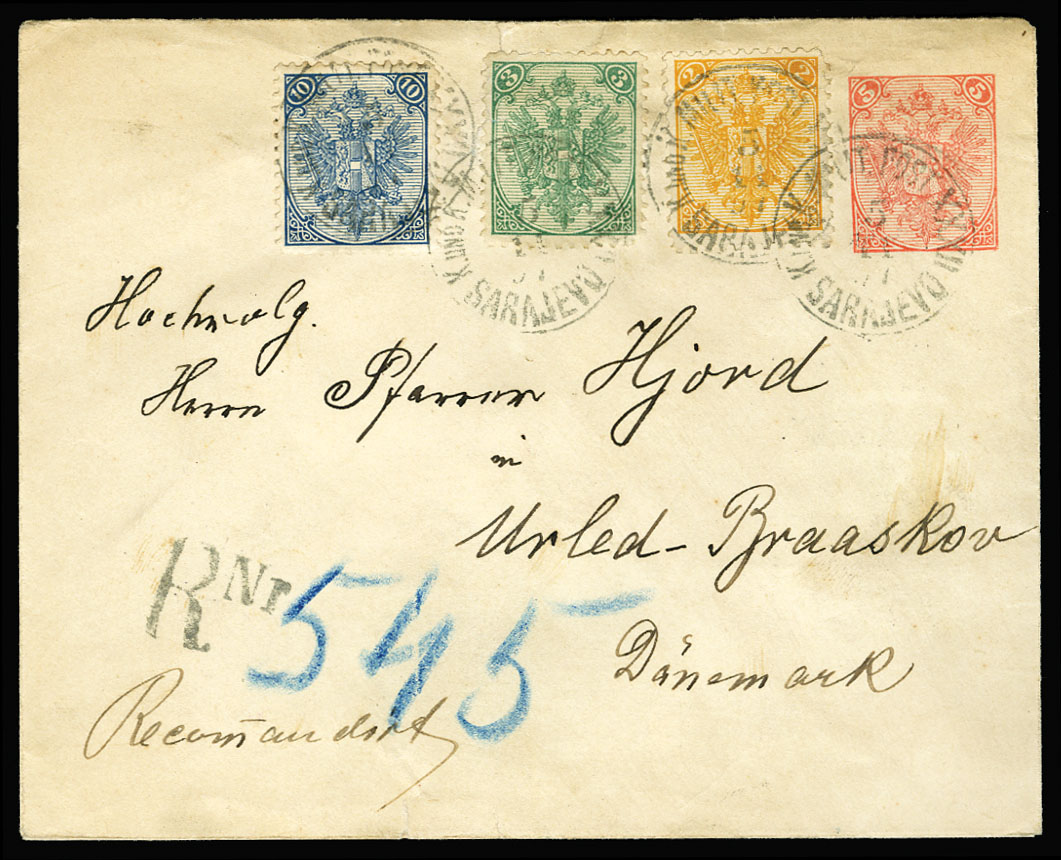 10 10 3 3 2 2 5 5
SARAJEVO SARAJEVO
Hochwolg.
Herrn Pfarrer Hjord
in
Urled-Braaskov
R Nr 545
Dänemark
Recomandirt